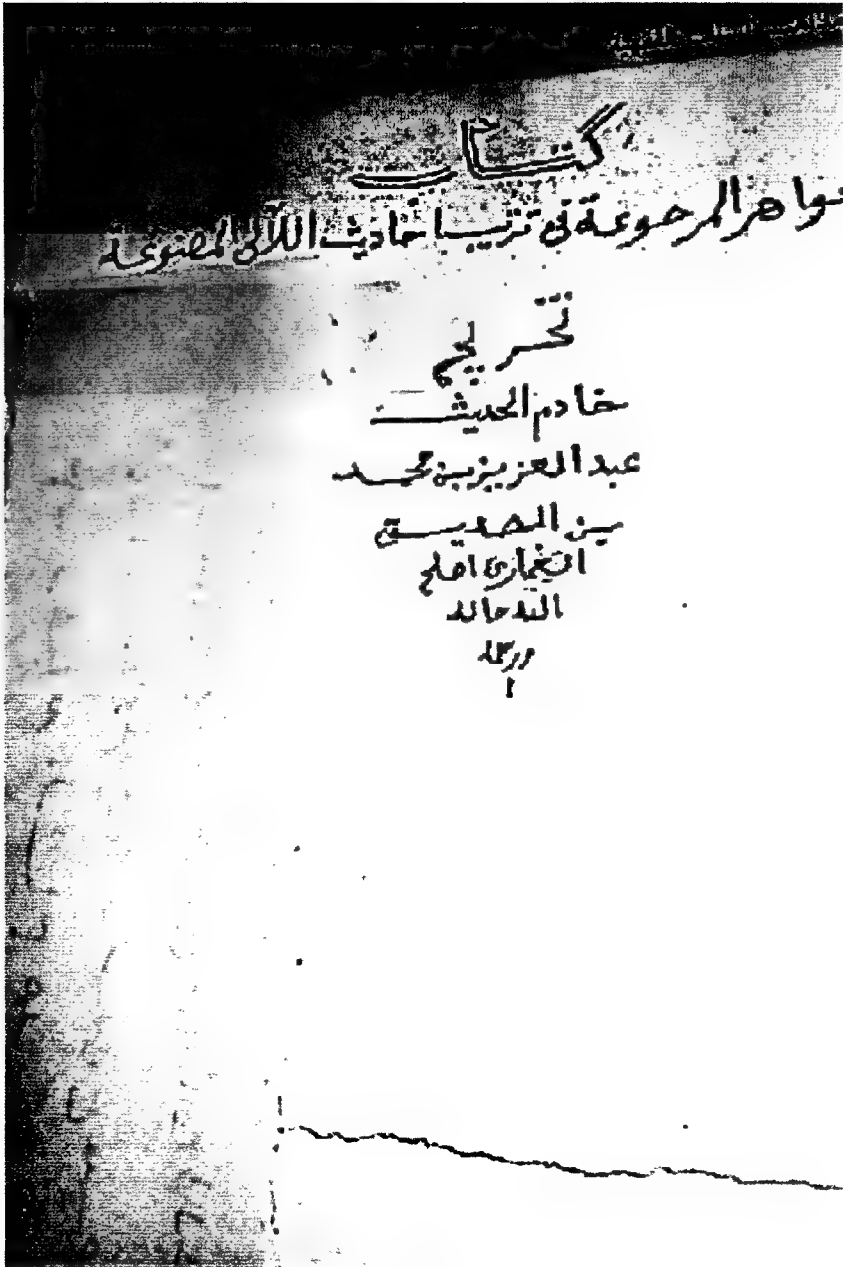 كتاب
واهر المرصوعة في ترتيب أحاديث اللآلي المصنوعة
تخريج
خادم الحديث
عبد العزيز بن محمد
بن الصديق
الغماري اصلح
الله حاله